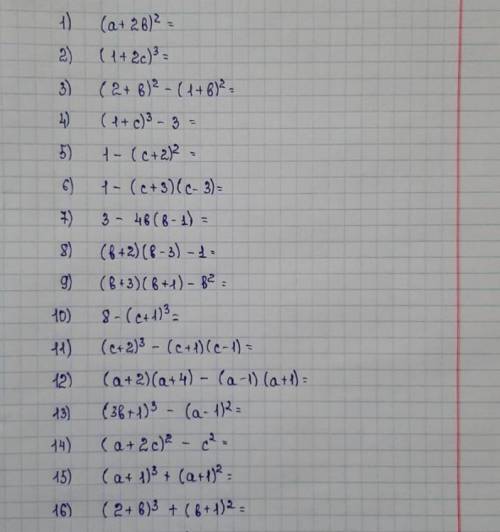 1) (a+2в)² =
2) (1+2c)³ =
3) (2+в)² - (1+в)² =
4) (1+c)³ - 3 =
5) 1 - (c+2)² =
6) 1 - (c+3)(c-3) =
7) 3 - 4в(в-1) =
8) (в+2)(в-3) - 1 =
9) (в+3)(в+1) - в² =
10) 8 - (c+1)³ =
11) (c+2)³ - (c+1)(c-1) =
12) (a+2)(a+4) - (a-1)(a+1) =
13) (3в+1)³ - (a-1)² =
14) (a+2c)² - c² =
15) (a+1)³ + (a+1)² =
16) (2+в)³ + (в+1)² =